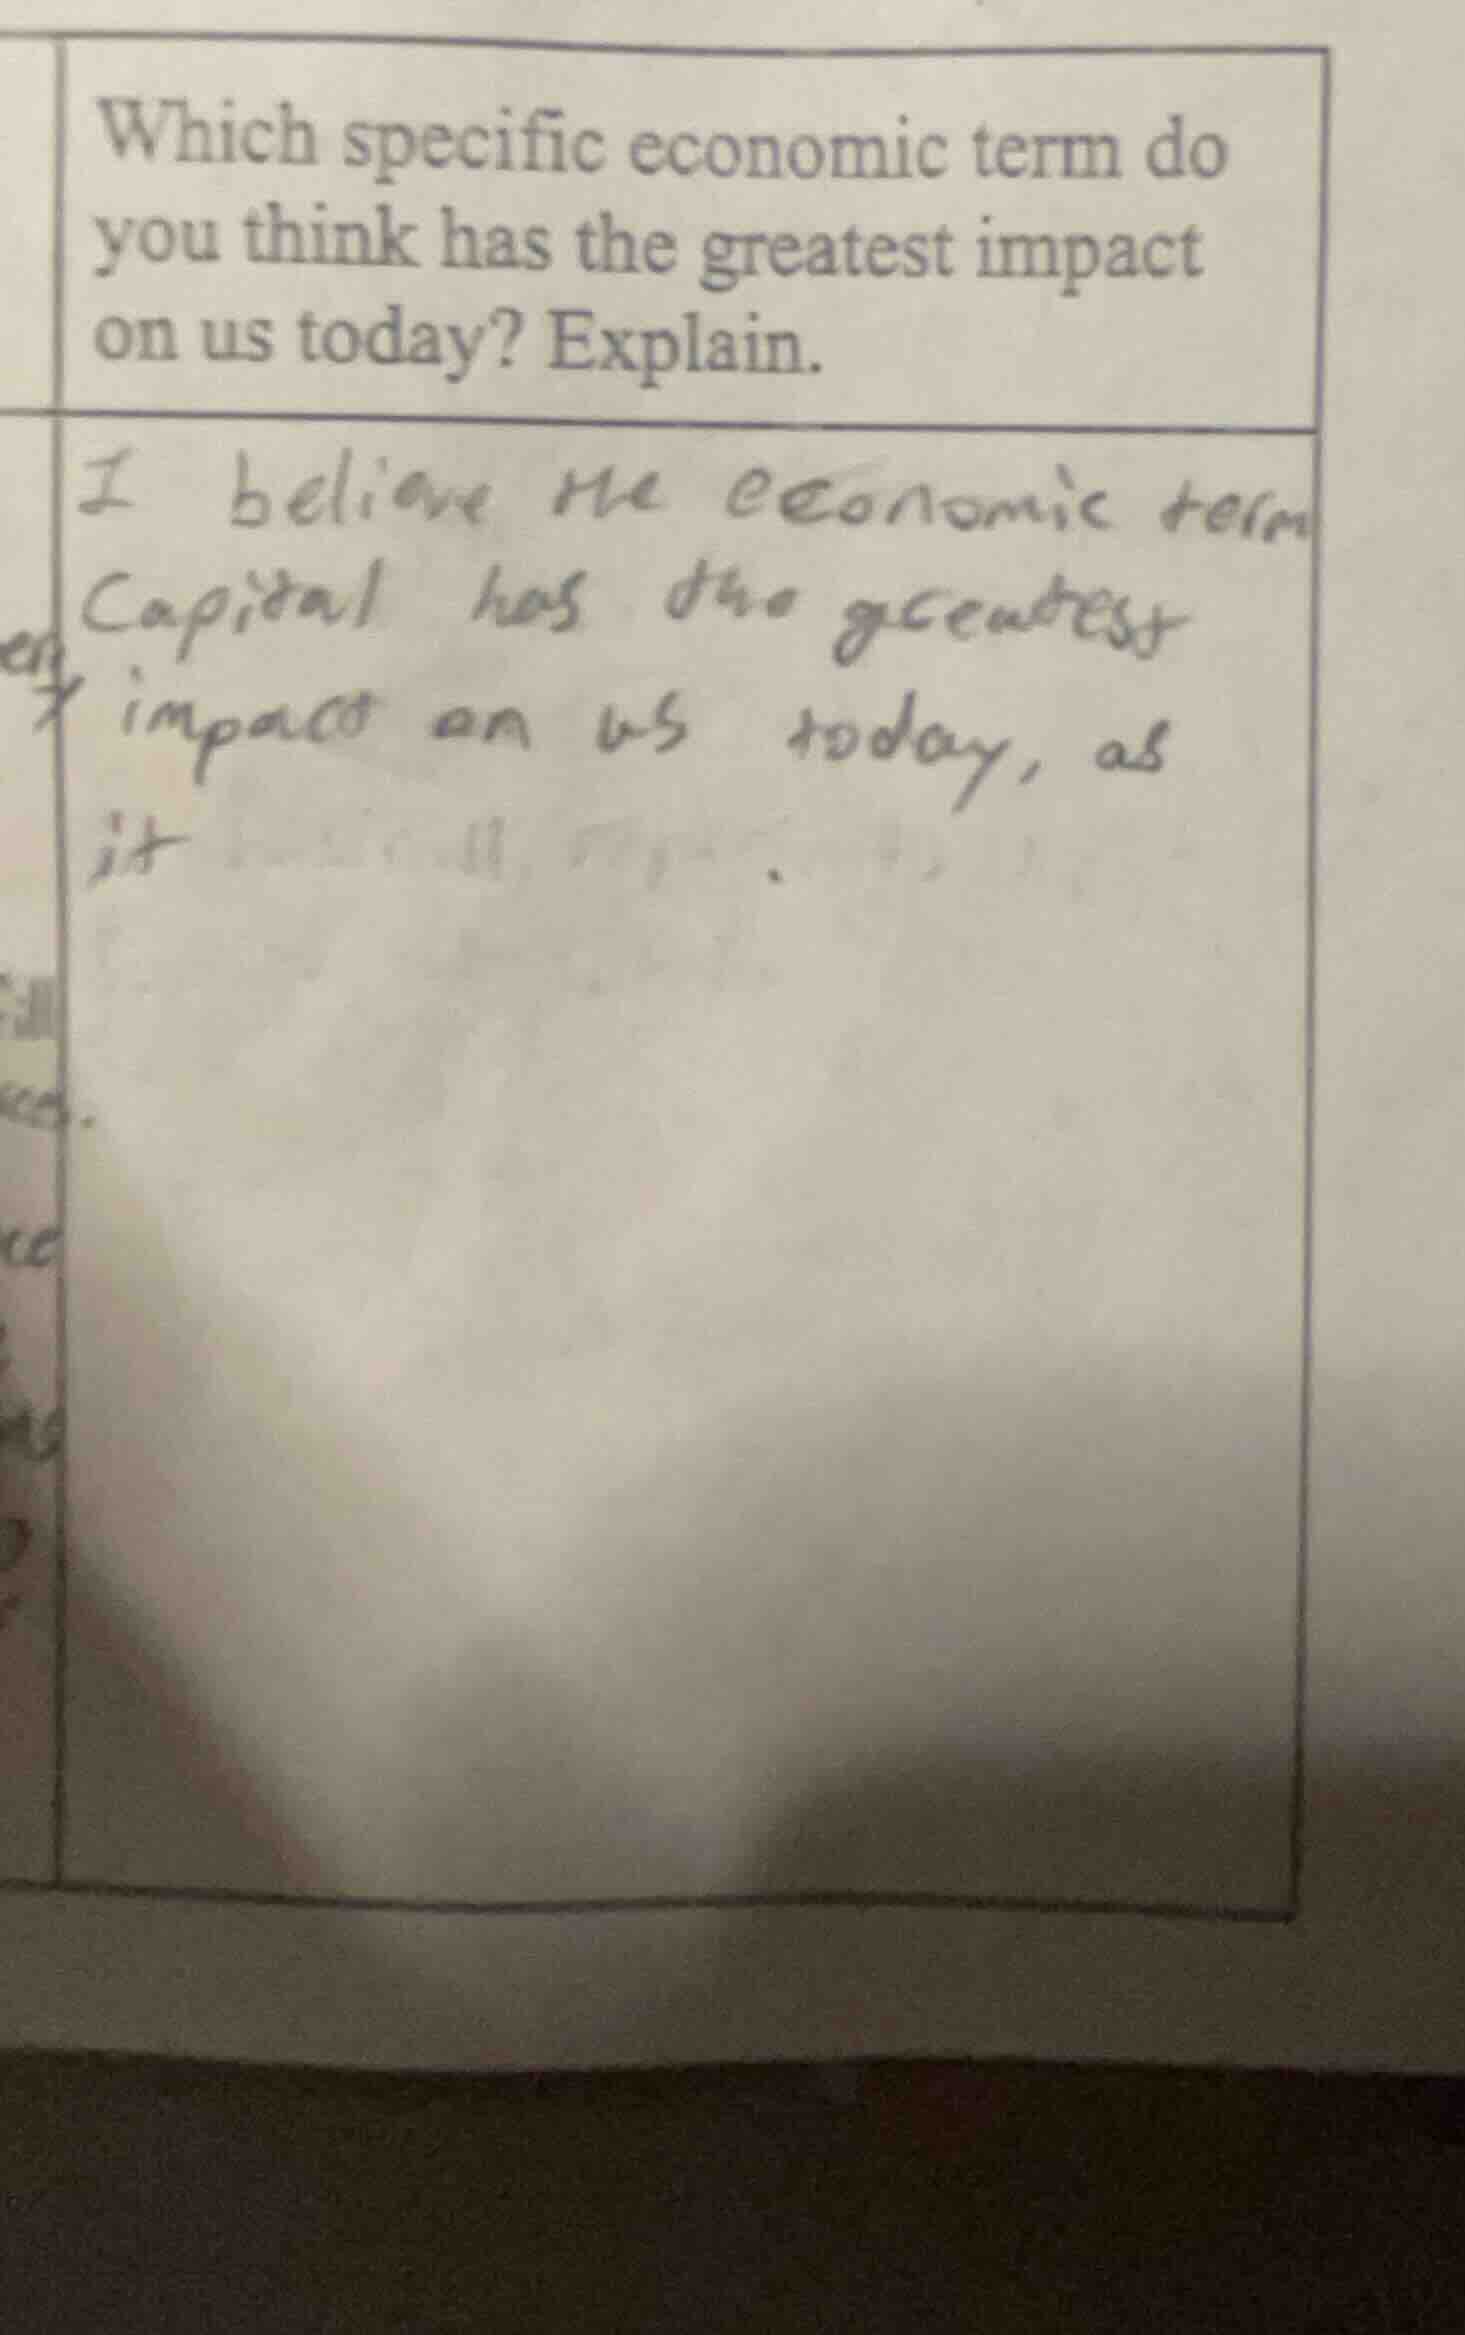 Which specific economic term do
you think has the greatest impact
on us today? Explain.
I believe the economic term
Capital has the greatest
impact on us today, as
it